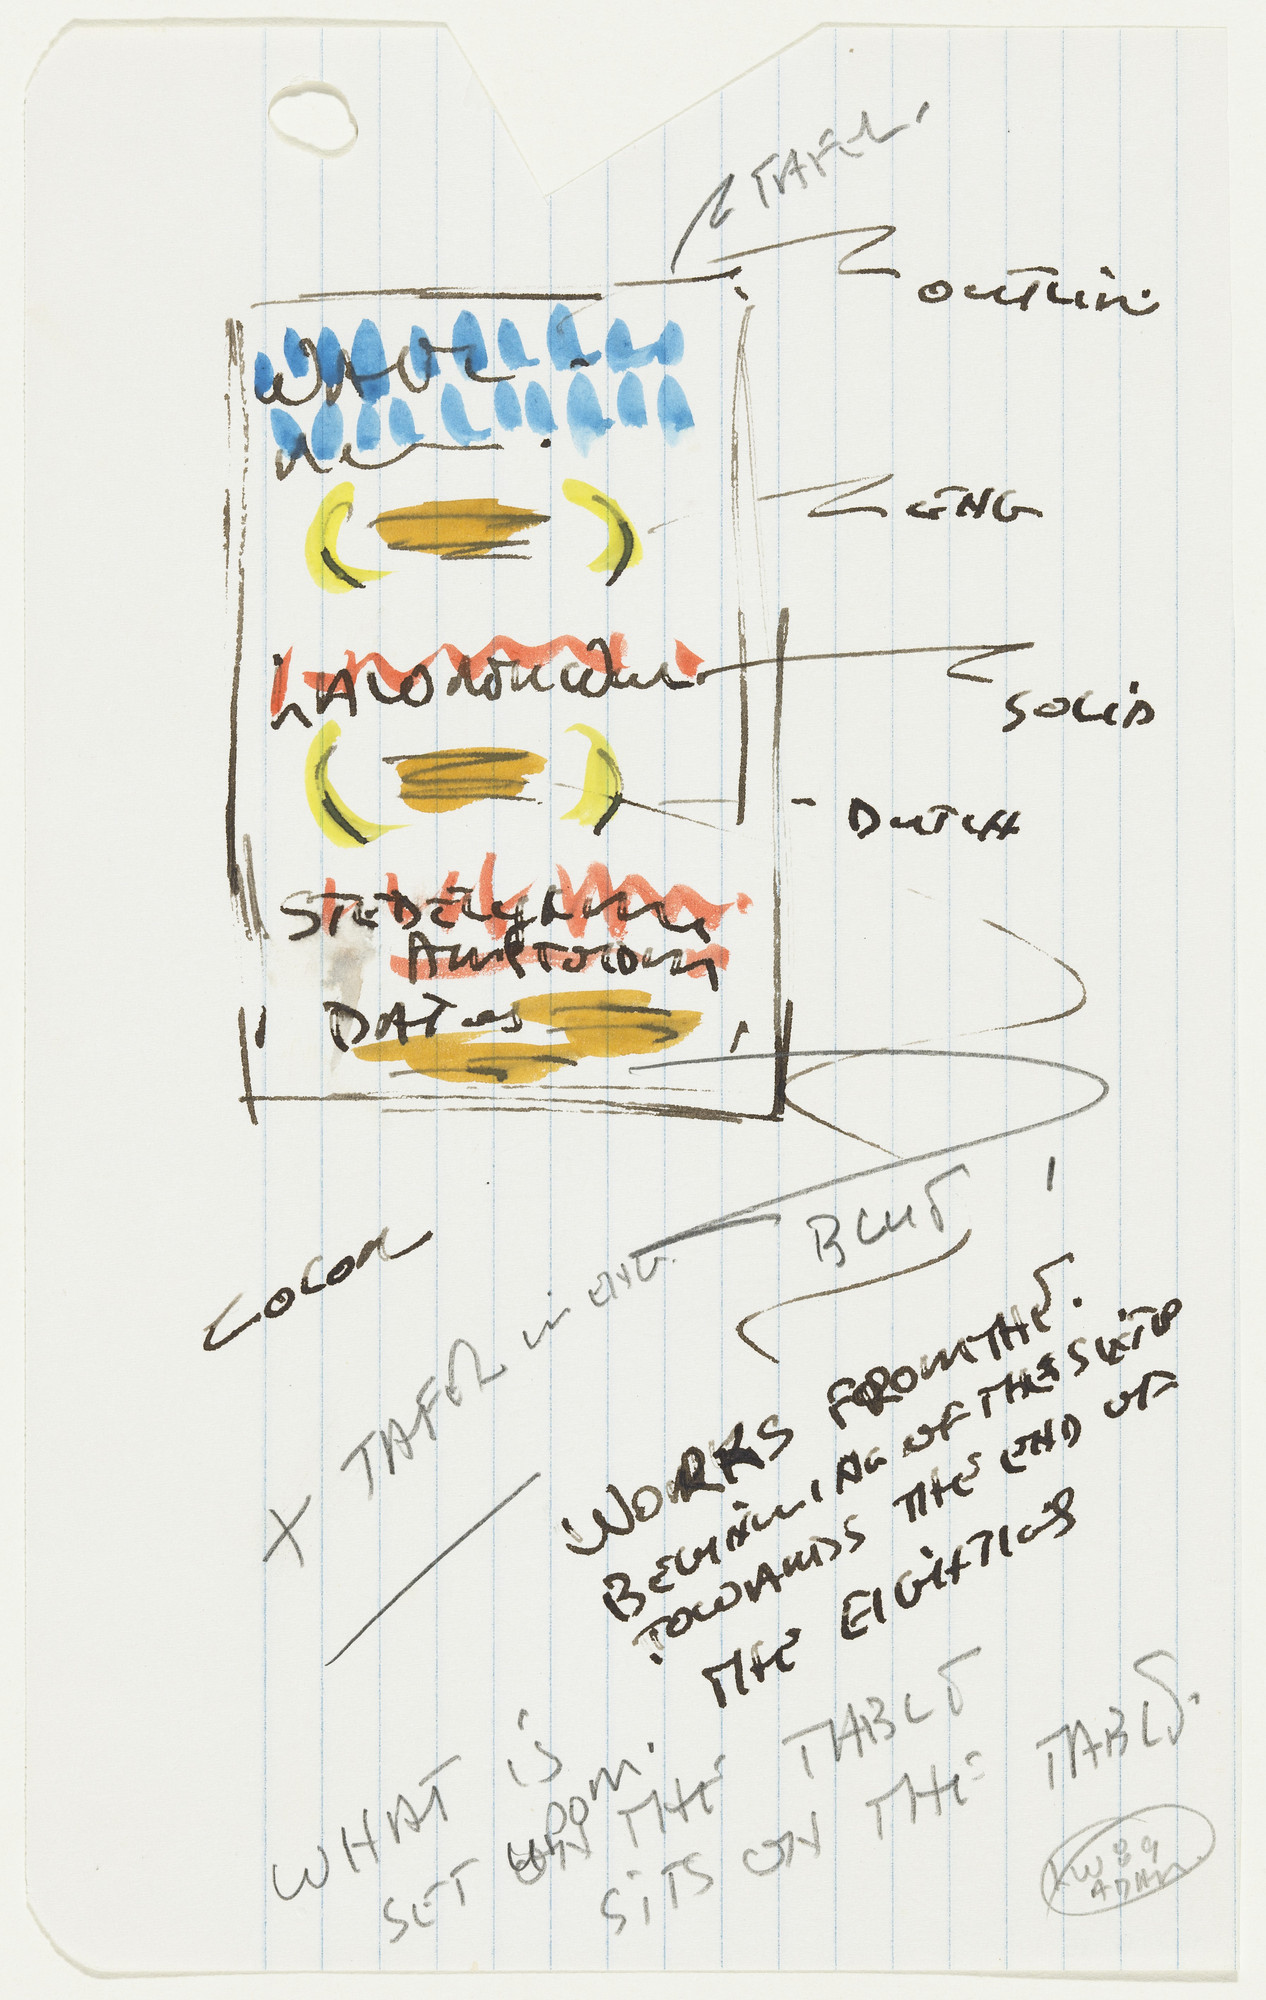 TAFEL.
OUTLIN.
ENG
SOLID
DUTCH
STEDELYK
AMSTERDAM
DATES
COLOR
BLUE
X TAFEL in ENG.
WORKS FROM THE.
BEGINNING OF THE SIXTIES
TOWARDS THE END OF
THE EIGHTIES
WHAT IS
SET UPON.
ON THE TABLE
SITS ON THE TABLE.
LW 89
ADAM